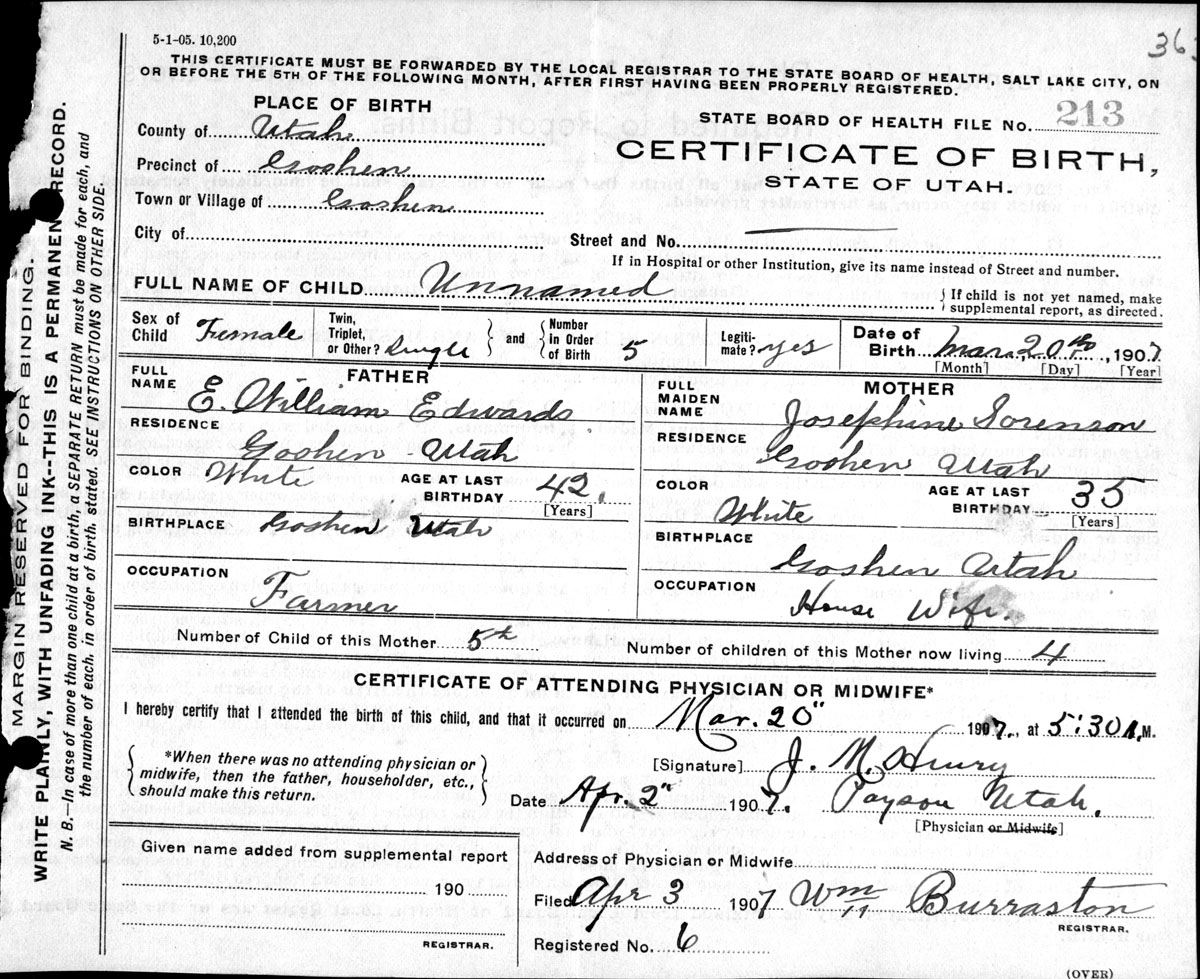 5-1-05. 10,200
THIS CERTIFICATE MUST BE FORWARDED BY THE LOCAL REGISTRAR TO THE STATE BOARD OF HEALTH, SALT LAKE CITY, ON
OR BEFORE THE 5TH OF THE FOLLOWING MONTH, AFTER FIRST HAVING BEEN PROPERLY REGISTERED.
PLACE OF BIRTH
STATE BOARD OF HEALTH FILE No. 213
County of Utah
CERTIFICATE OF BIRTH,
Precinct of Goshen
STATE OF UTAH.
Town or Village of Goshen
City of
Street and No.
If in Hospital or other Institution, give its name instead of Street and number.
FULL NAME OF CHILD Unnamed
If child is not yet named, make
supplemental report, as directed.
Sex of Child Female
Twin, Triplet, or Other? Single
and
Number in Order of Birth 5
Legitimate? yes
Date of Birth Mar. 20th, 1907
[Month] [Day] [Year]
FATHER
FULL NAME E. William Edwards
RESIDENCE Goshen Utah
COLOR White
AGE AT LAST BIRTHDAY 42.
[Years]
BIRTHPLACE Goshen Utah
OCCUPATION Farmer
MOTHER
FULL MAIDEN NAME Josephine Sorenson
RESIDENCE Goshen Utah
COLOR White
AGE AT LAST BIRTHDAY 35
[Years]
BIRTHPLACE Goshen Utah
OCCUPATION House Wife.
Number of Child of this Mother 5th
Number of children of this Mother now living 4
CERTIFICATE OF ATTENDING PHYSICIAN OR MIDWIFE*
I hereby certify that I attended the birth of this child, and that it occurred on Mar. 20" 1907., at 5:30 M.
*When there was no attending physician or
midwife, then the father, householder, etc.,
should make this return.
[Signature] J. M.
Date Apr. 2" 1907. Payson Utah.
[Physician or Midwife]
Given name added from supplemental report
190
REGISTRAR.
Address of Physician or Midwife
Filed Apr 3 1907 Wm Burraston
REGISTRAR.
Registered No. 6
(OVER)
MARGIN RESERVED FOR BINDING.
WRITE PLAINLY, WITH UNFADING INK--THIS IS A PERMANENT RECORD.
N. B.—In case of more than one child at a birth, a SEPARATE RETURN must be made for each, and
the number of each, in order of birth, stated. SEE INSTRUCTIONS ON OTHER SIDE.